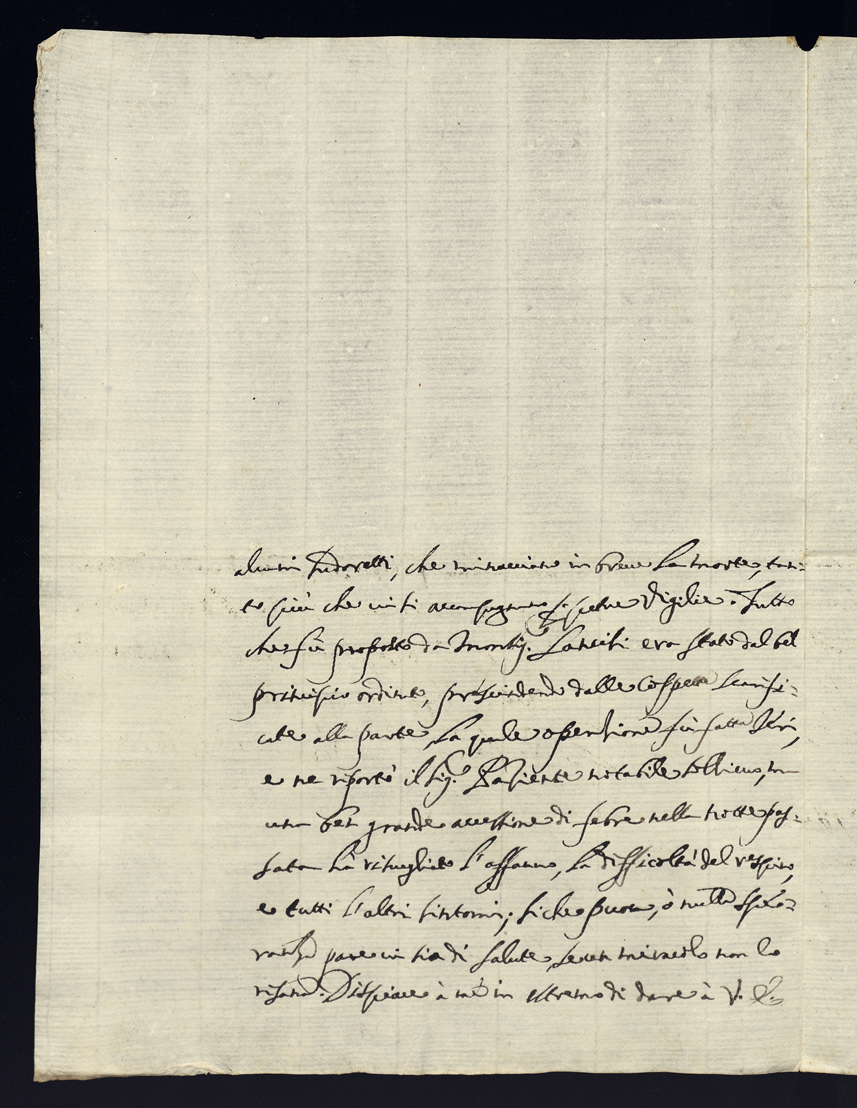 alcuni sudoretti, che minacciano in breve la morte, tan-
to più che vi si accompagnano perpetue Vigilie. Tutto
che fù proposto da Monsig.r Lancisi era stato dal bel
principio ordinato, prescindendo dalle Coppette scarifi-
cate alla parte, la quale operazione fù fatta Ieri,
e ne riportò il Sig.r Paziente notabile sollievo, ma
una ben grande accessione di febre nella notte pas-
sata hà risvegliato l'affanno, la difficoltà del respiro,
e tutti l'altri sintomi; siche puoca, ò nulla spe-
ranza pare vi sia di salute, se un miracolo non lo
risana. Dispiace à mè in estremo di dare à V. E.